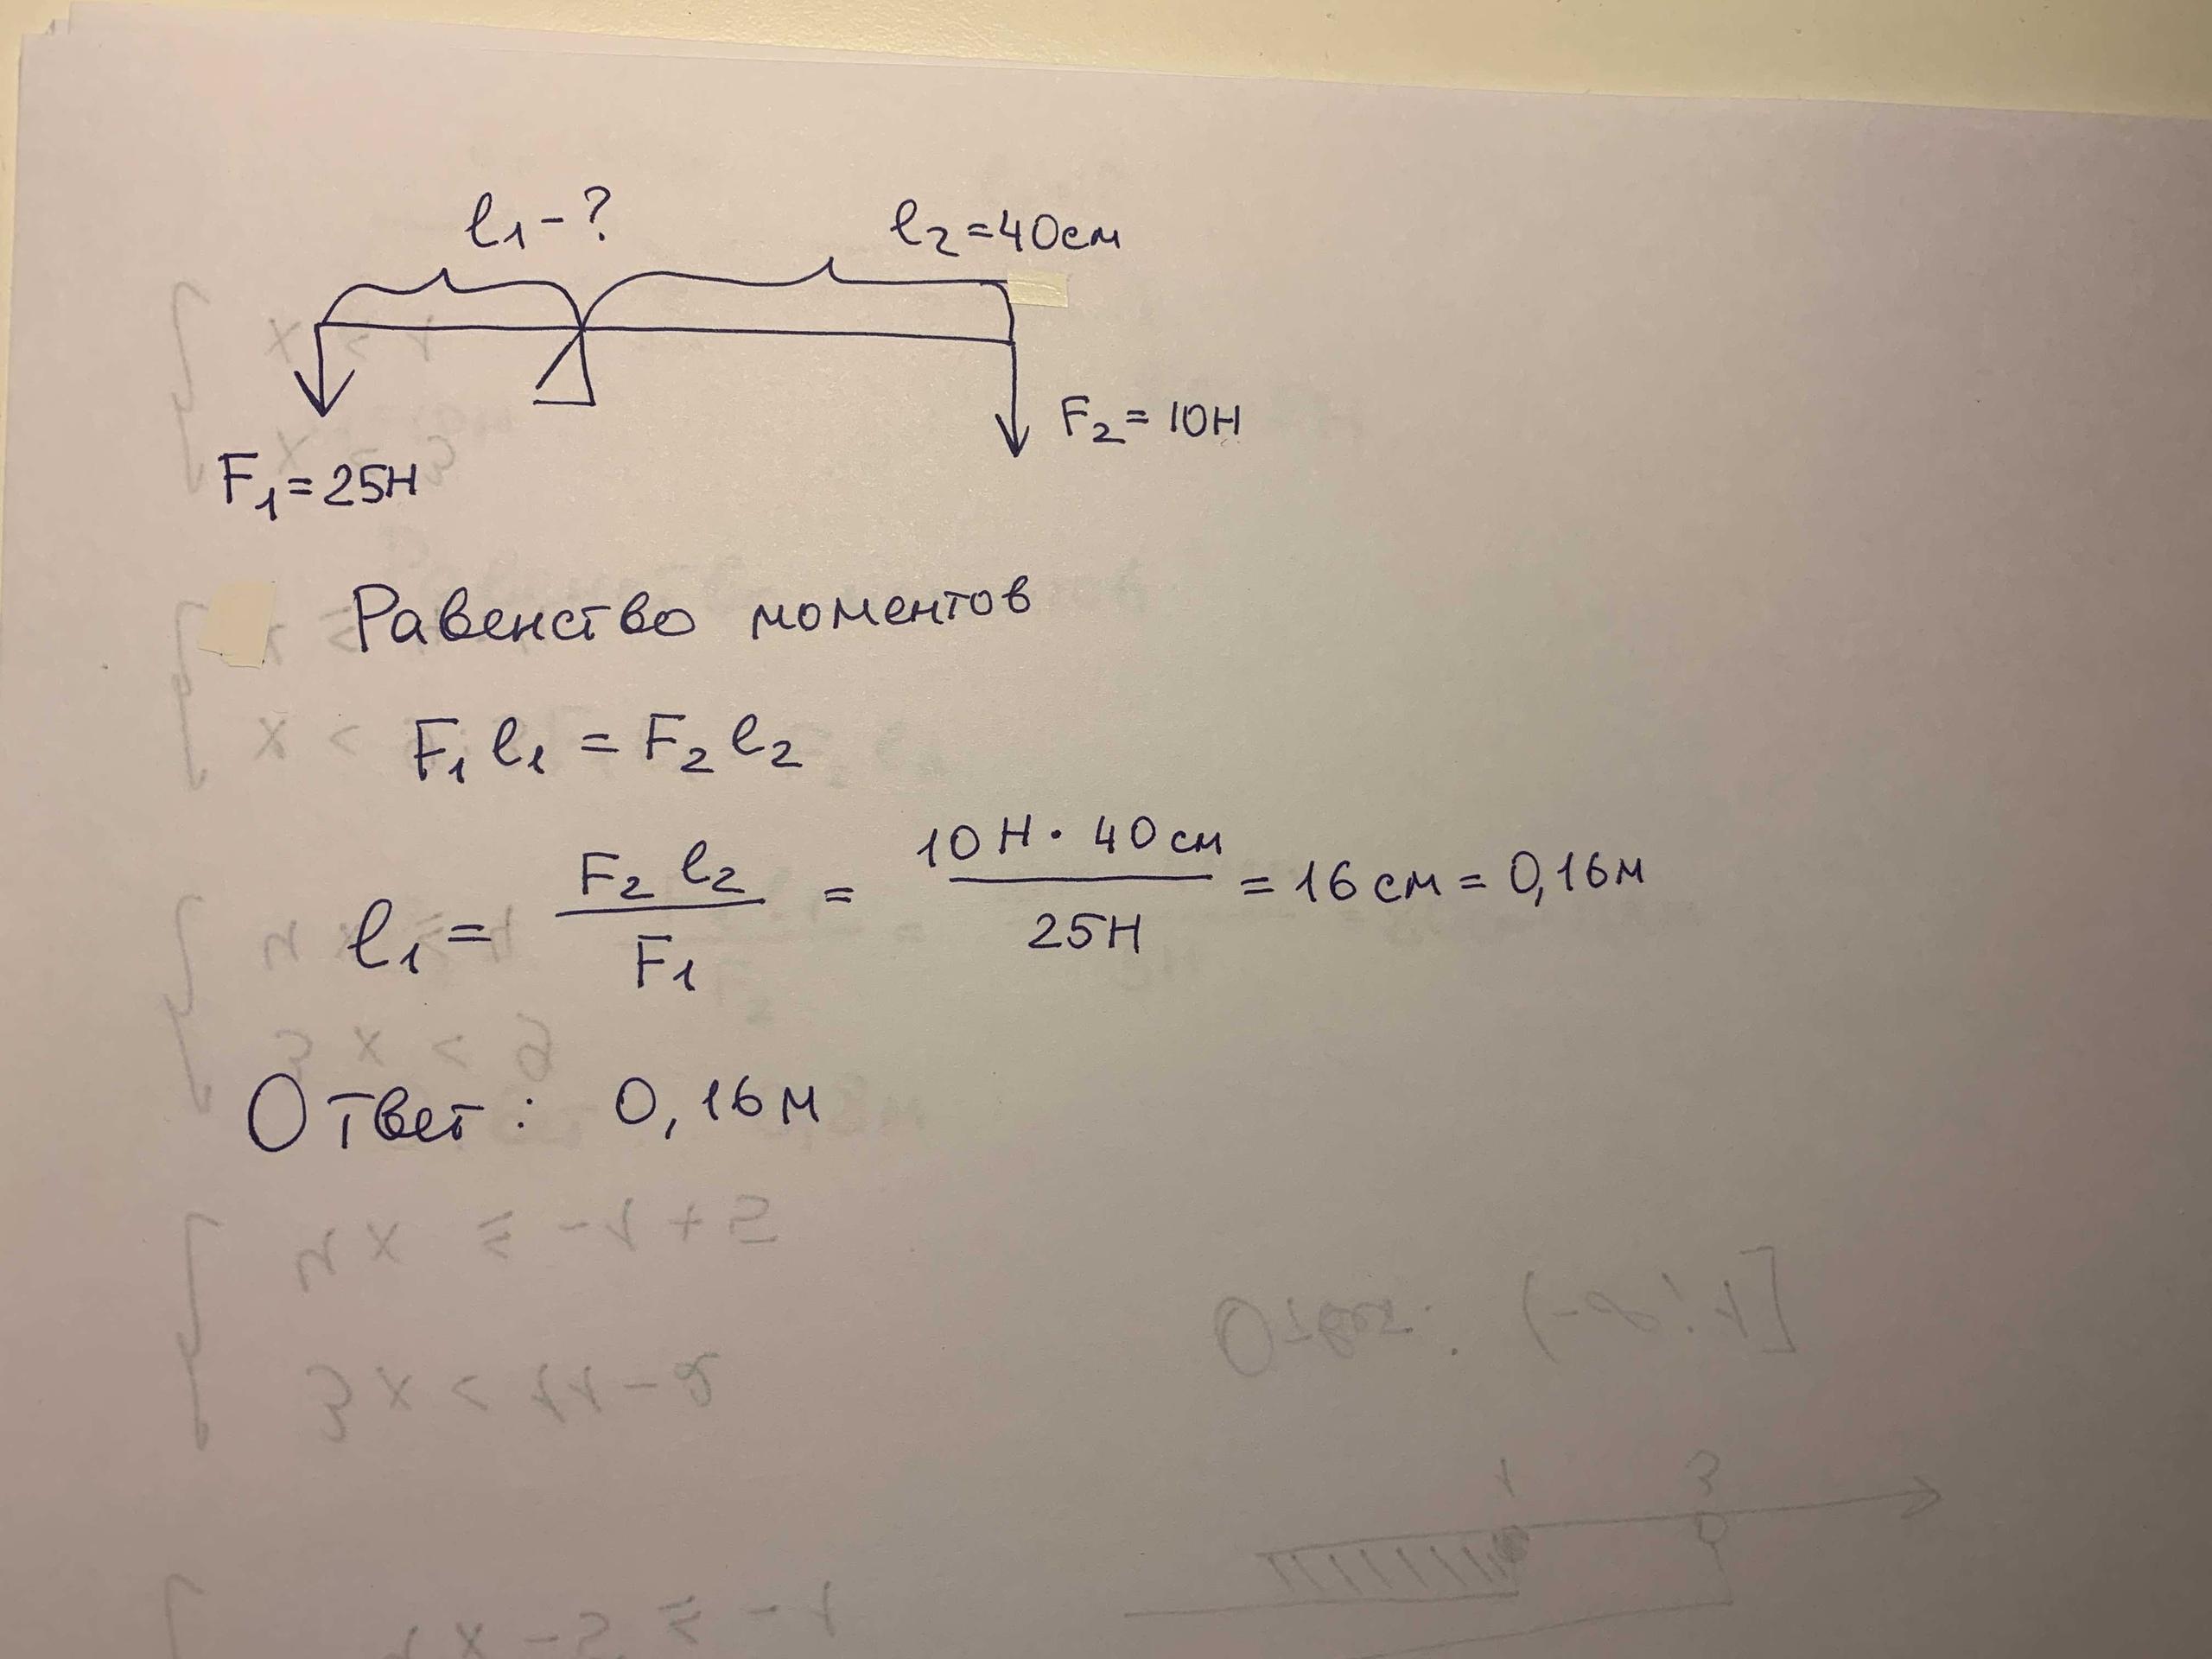 l₁ - ? l₂ = 40см
F₂ = 10Н
F₁ = 25Н
Равенство моментов
F₁ l₁ = F₂ l₂
l₁ = F₂ l₂ / F₁ = 10Н · 40см / 25Н = 16см = 0,16м
Ответ: 0,16м